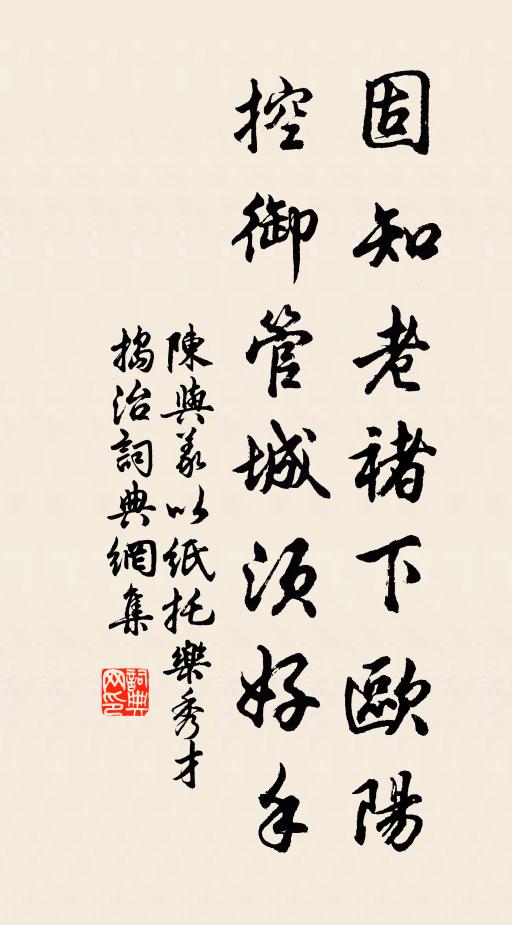 固知老褚下歐陽
控御管城須好手
陳與義以紙托樂秀才
搗治詞典網集
詞典网印